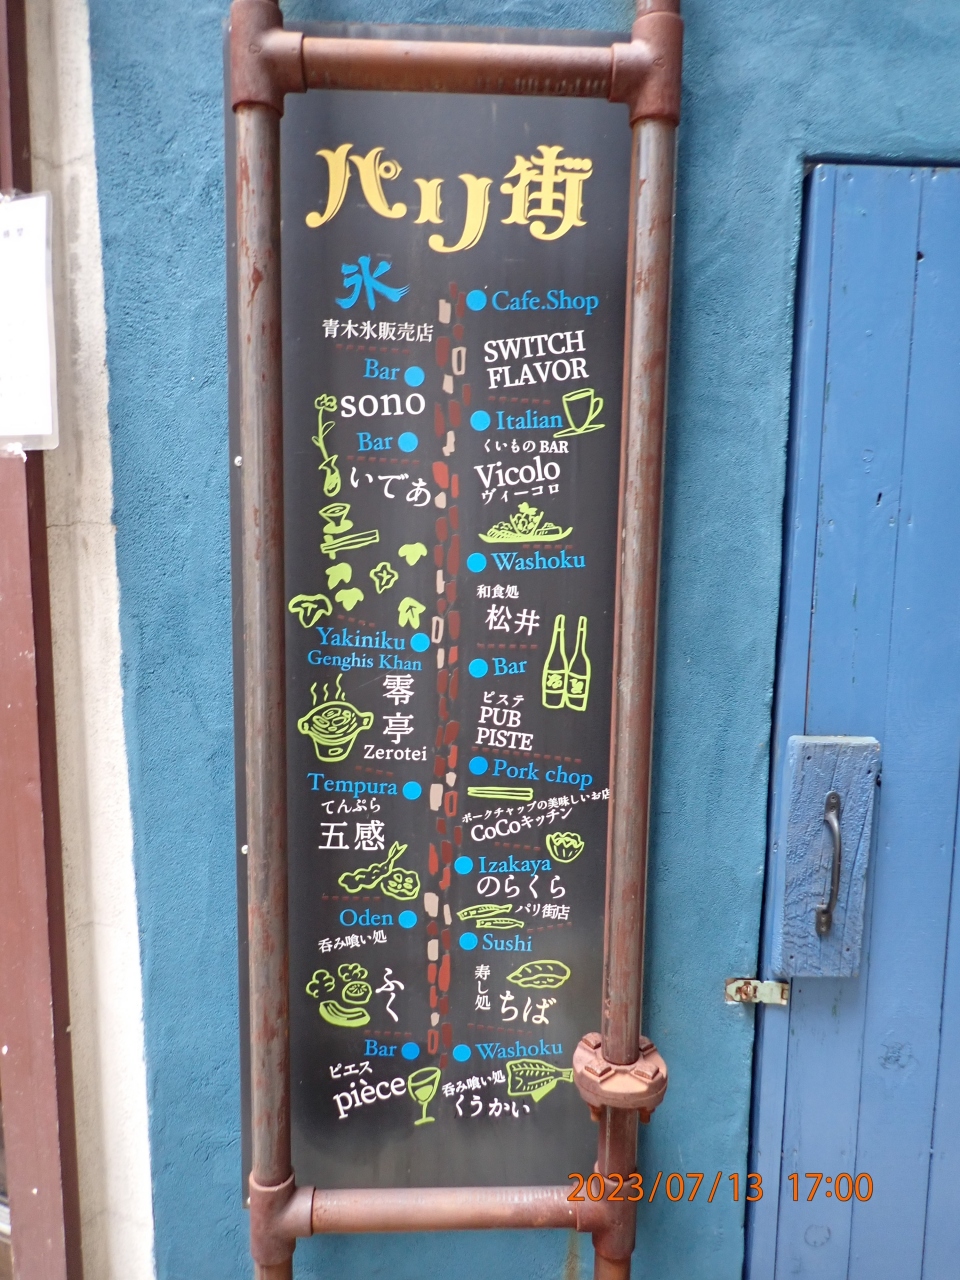 パリ街
氷
青木氷販売店
Bar
sono
Bar
いであ
Yakiniku
Genghis Khan
零亭
Zerotei
Tempura
てんぷら
五感
Oden
呑み喰い処
ふく
Bar
ピエス
pièce
Cafe.Shop
SWITCH
FLAVOR
Italian
くいものBAR
Vicolo
ヴィーコロ
Washoku
和食処
松井
Bar
ピステ
PUB
PISTE
Pork chop
ポークチャップの美味しいお店
CoCoキッチン
Izakaya
のらくら
パリ街店
Sushi
寿し処
ちば
Washoku
呑み喰い処
くうかい
2023/07/13 17:00